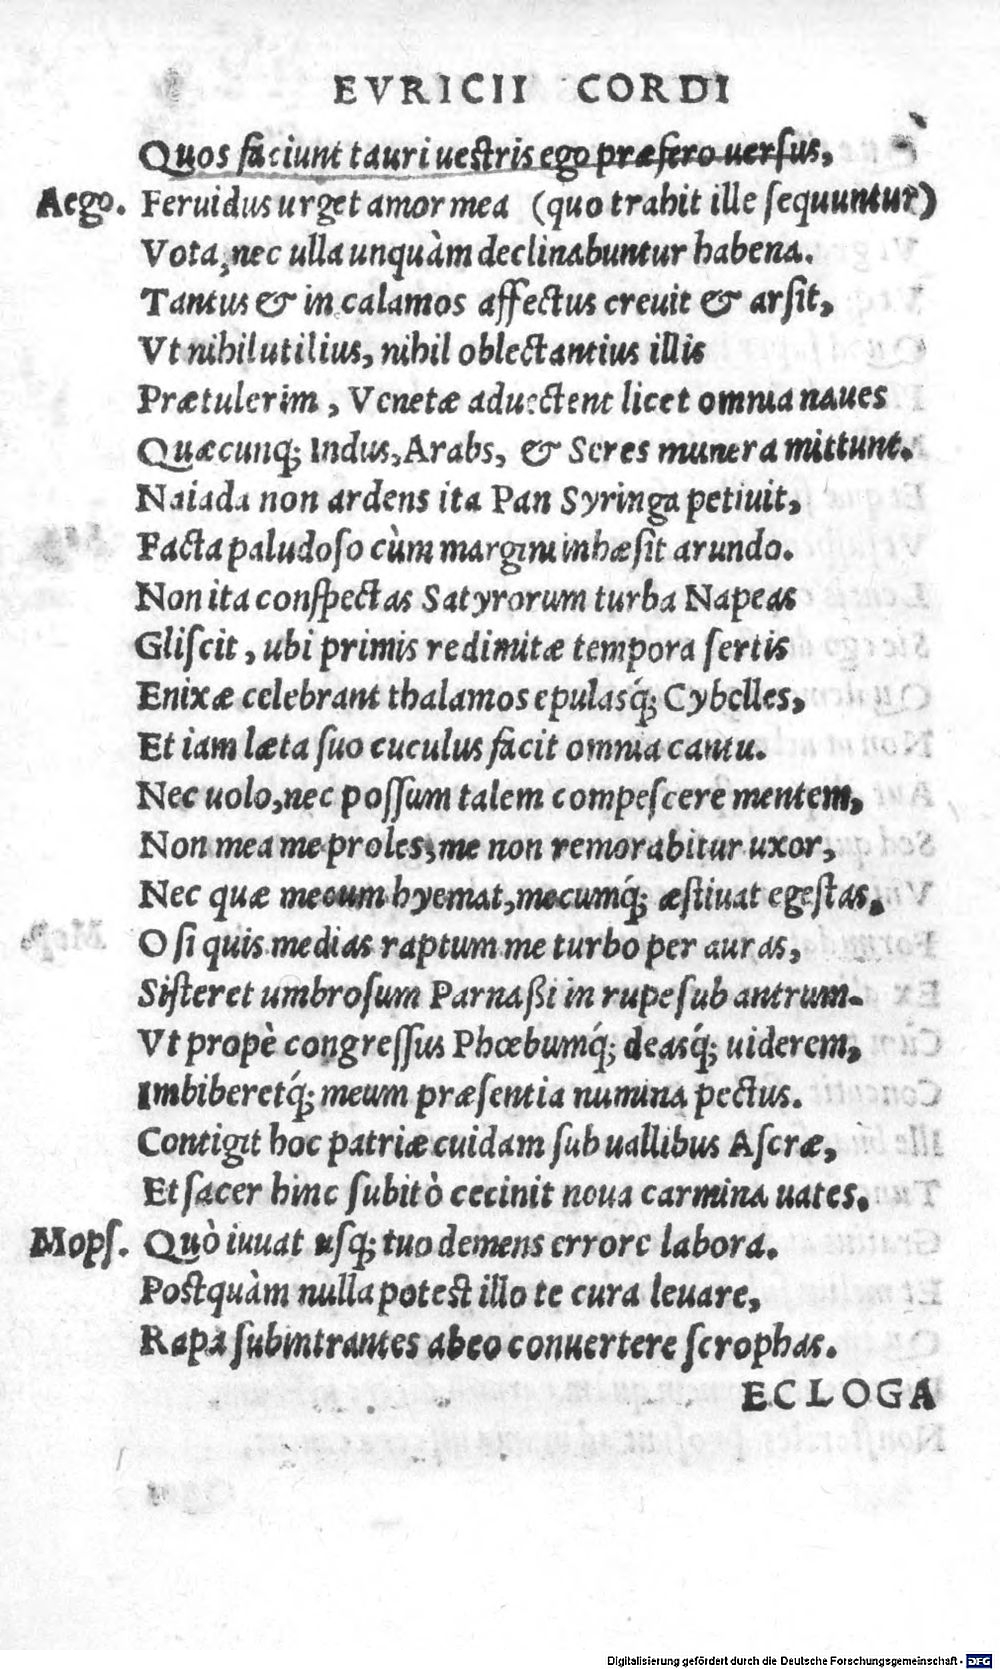 EVRICII CORDI
Quos faciunt tauri uestris ego præfero uersus,
Aego. Feruidus urget amor mea (quo trahit ille sequuntur)
Vota, nec ulla unquàm declinabuntur habena.
Tantus & in calamos affectus creuit & arsit,
Vt nihil utilius, nihil oblectantius illis
Prætulerim, Venetæ aduectent licet omnia naues
Quæcunq; Indus, Arabs, & Seres munera mittunt.
Naiada non ardens ita Pan Syringa petiuit,
Facta paludoso cùm margini inhæsit arundo.
Non ita conspectas Satyrorum turba Napeas
Gliscit, ubi primis redimitæ tempora sertis
Enixæ celebrant thalamos epulasq́; Cybelles,
Et iam læta suo cuculus facit omnia cantu.
Nec uolo, nec possum talem compescere mentem,
Non mea me proles, me non remorabitur uxor,
Nec quæ mecum hyemat, mecumq́; æstiuat egestas.
O si quis medias raptum me turbo per auras,
Sisteret umbrosum Parnaßi in rupe sub antrum.
Vt propè congressus Phœbumq́; deasq́; uiderem,
Imbiberetq́; meum præsentia numina pectus.
Contigit hoc patriæ cuidam sub uallibus Ascræ,
Et sacer hinc subitò cecinit noua carmina uates.
Mops. Quò iuuat usq; tuo demens errore labora.
Postquàm nulla potest illo te cura leuare,
Rapa subintrantes abeo conuertere scrophas.
ECLOGA
Digitalisierung gefördert durch die Deutsche Forschungsgemeinschaft - DFG